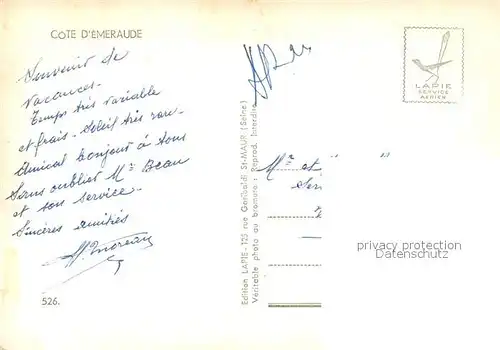 COTE D'EMERAUDE
Souvenir de
vacances.
Temps très variable
et frais. Soleil très rare
Amical bonjour à tous
Sans oublier Mr Beau
et son service.
Sincères amitiés
Moreau
526.
Edition LAPIE - 125 rue Garibaldi St-MAUR (Seine)
Véritable photo au bromure - Reprod. interdite
LAPIE
SERVICE
AERIEN
Mr et " "
privacy protection
Datenschutz